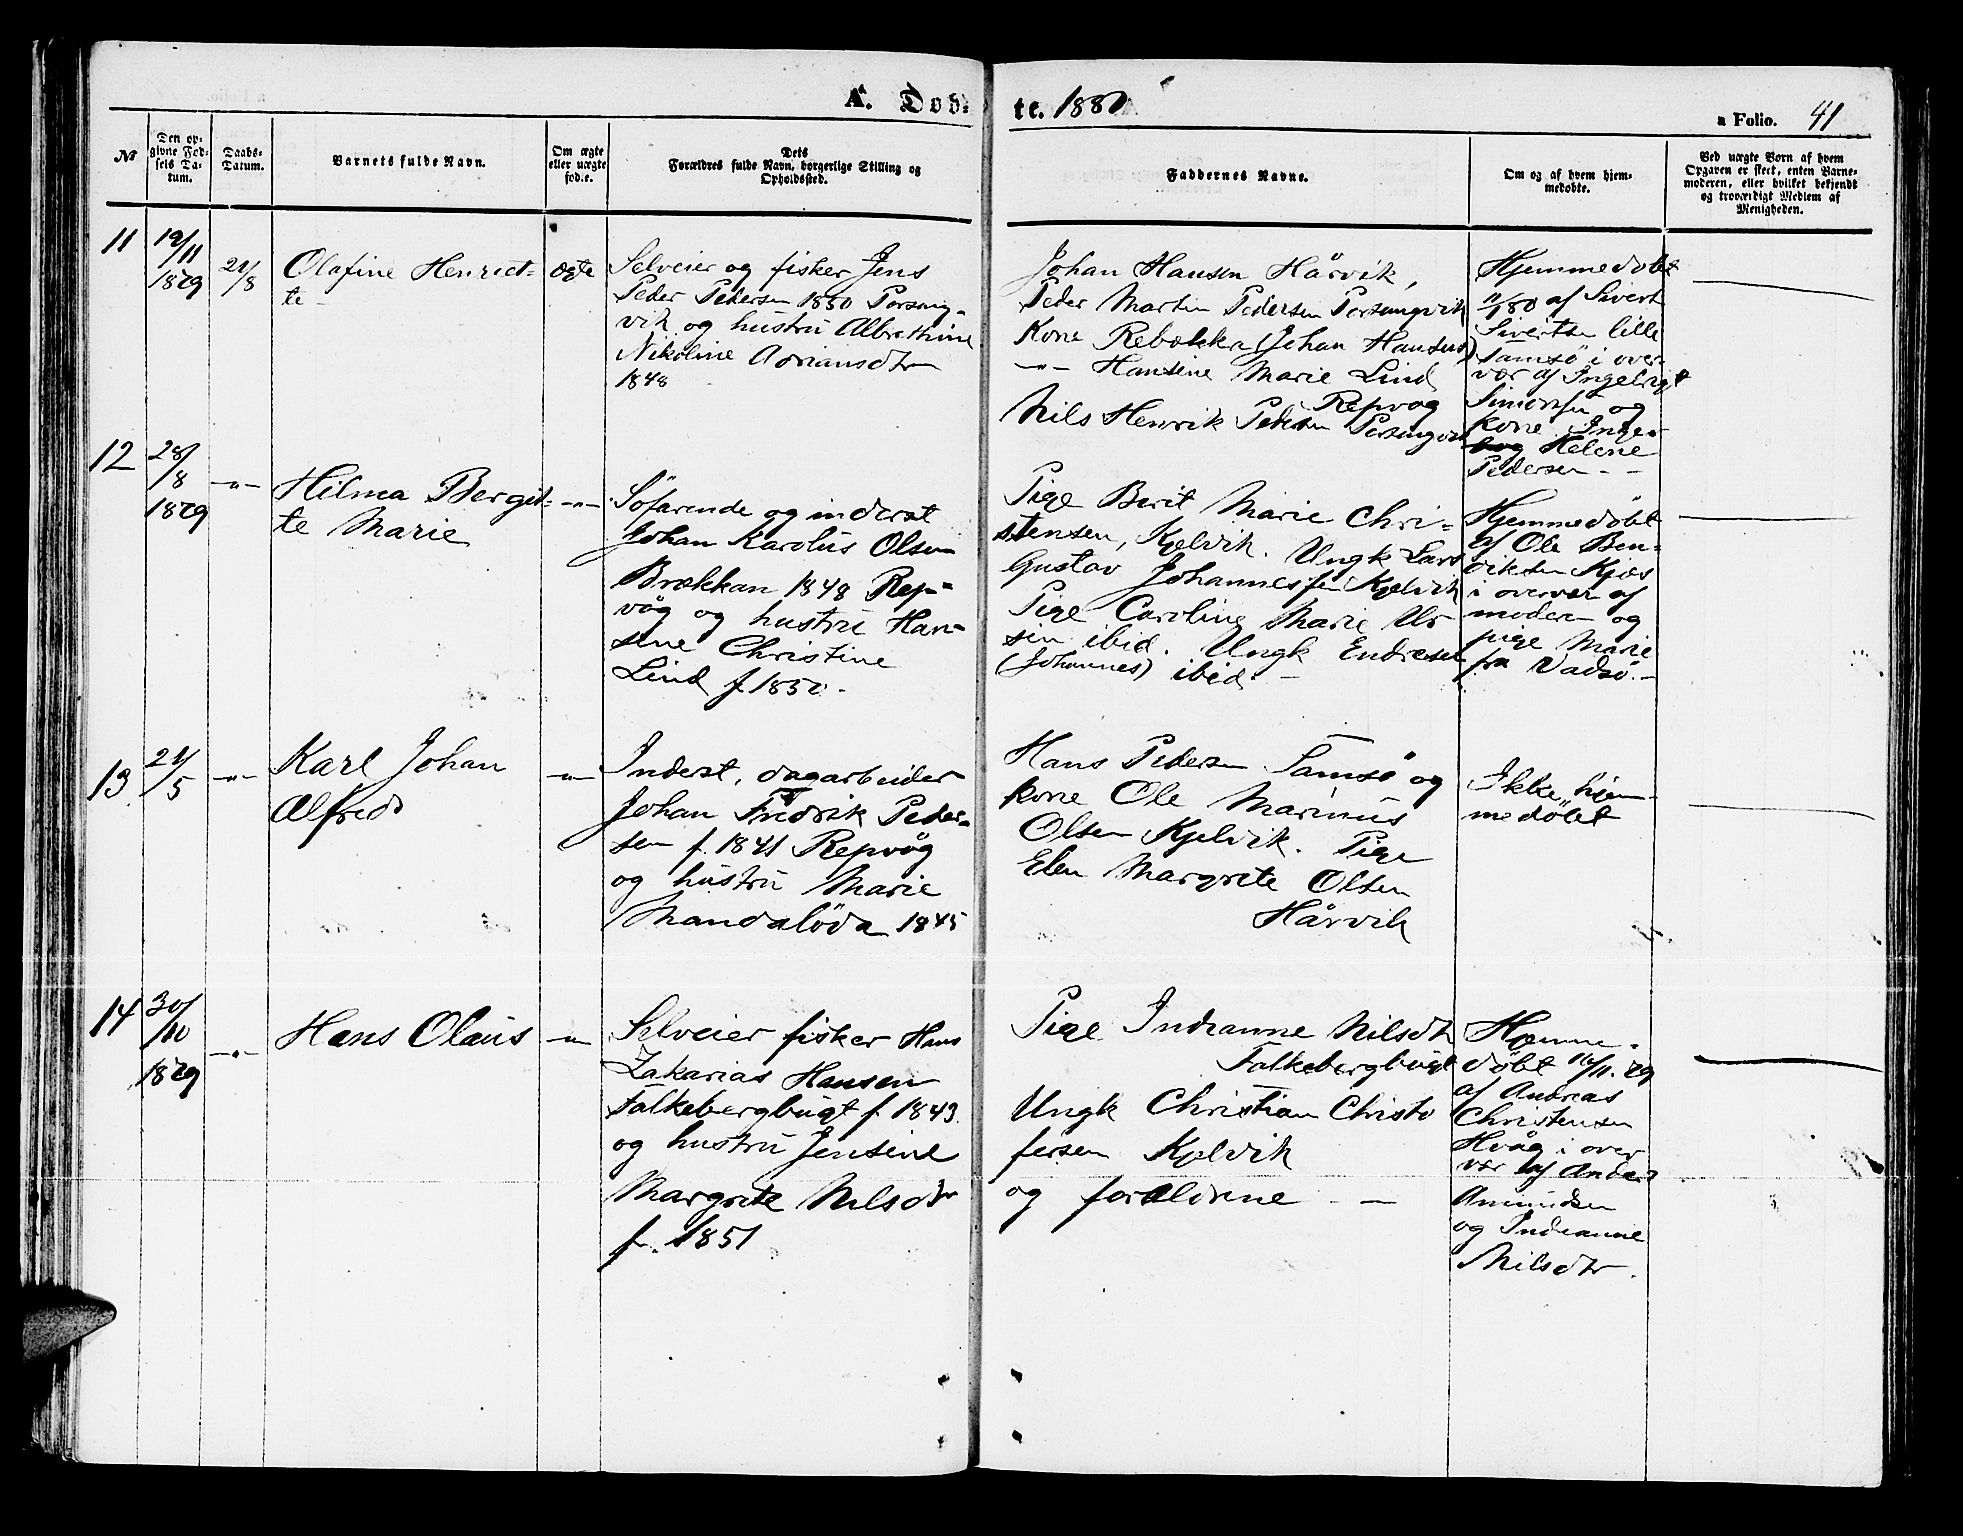 A. Døb-
te. 1880
a Folio. 41
№
Den op-
givne Fød-
sels Da-
tum.
Daabs-
Datum.
Barnets fulde Navn.
Om ægte
eller uægte
fød.e.
Dets
Forældres fulde Navn, borgerlige Stilling og
Opholdssted.
Faddernes Navne.
Om og af hvem hjem-
medøbte.
Ved uægte Børn af hvem
Opgaven er skeet, enten Barne-
moderen, eller hvilket bekjendt
og troværdigt Medlem af
Menigheden.
11
19/11
1879
21/8
Olafine Henriet-
te -
ægte
Selveier og fisker Jens
Peder Pedersen 1850 Porsang-
vik og hustru Albrethine
Nikoline Adriansdtr
1848
Johan Hansen Hårvik,
Peder Martin Pedersen Porsangvik
Kone Rebekka (Johan Hansens)
-"- Hansine Marie Lind
Repvåg
Nils Henrik Pedersen Porsangvik
Hjemmedøbt
11/1 80 af Sivert
Sivertsen lille
Tamsö i over-
vær af Ingebrigt
Simonsen og
kone Inge-
borg Helene
Pedersen -
12
28/8
1879
-"-
Hilma Bergit-
te Marie
-"-
Söfarende og inderst
Johan Karolus Olsen
Brækkan 1848 Rep-
våg og hustru Han-
sine Christine
Lind f. 1850 -
Pige Berit Marie Chri-
stensen, Kjelvik. Ungk Lars
Gustav Johannesen Kjelvik
Pige Caroline Marie Ur
sin ibid. Ungk Endresen
(Johannes) ibid. -
Hjemmedöbt
af Ole Ben-
diksen Kjæs
i overvær af
moderen og
pige Marie
fra Vadsö. -
13
21/5
-"-
Karl Johan
Alfred
-"-
Inderst, dagarbeider
Johan Fredrik Peder-
sen f. 1841 Repvåg
og hustru Marie
Mandalöda 1845
Hans Pedersen Tamsö og
kone Ole Marinus
Olsen Kjelvik. Pige
Elen Margrete Olsen
Hårvik
Ikke hjem-
medöbt
14
30/10
1879
-"-
Hans Olaus
-"-
Selveier fisker Hans
Zakarias Hansen
Falkebergbugt f. 1843
og hustru Jensine
Margrete Nilsdtr
f. 1851
Pige Indianne Nilsdtr
Falkebergbugt
Ungk Christian Christo
fersen Kjelvik
og forældrene - -
Hjemme-
döbt 16/11. 79
af Andreas
Christensen
Hvåg i over
vær af Anders
Amundsen
og Indianne
Nilsdtr.